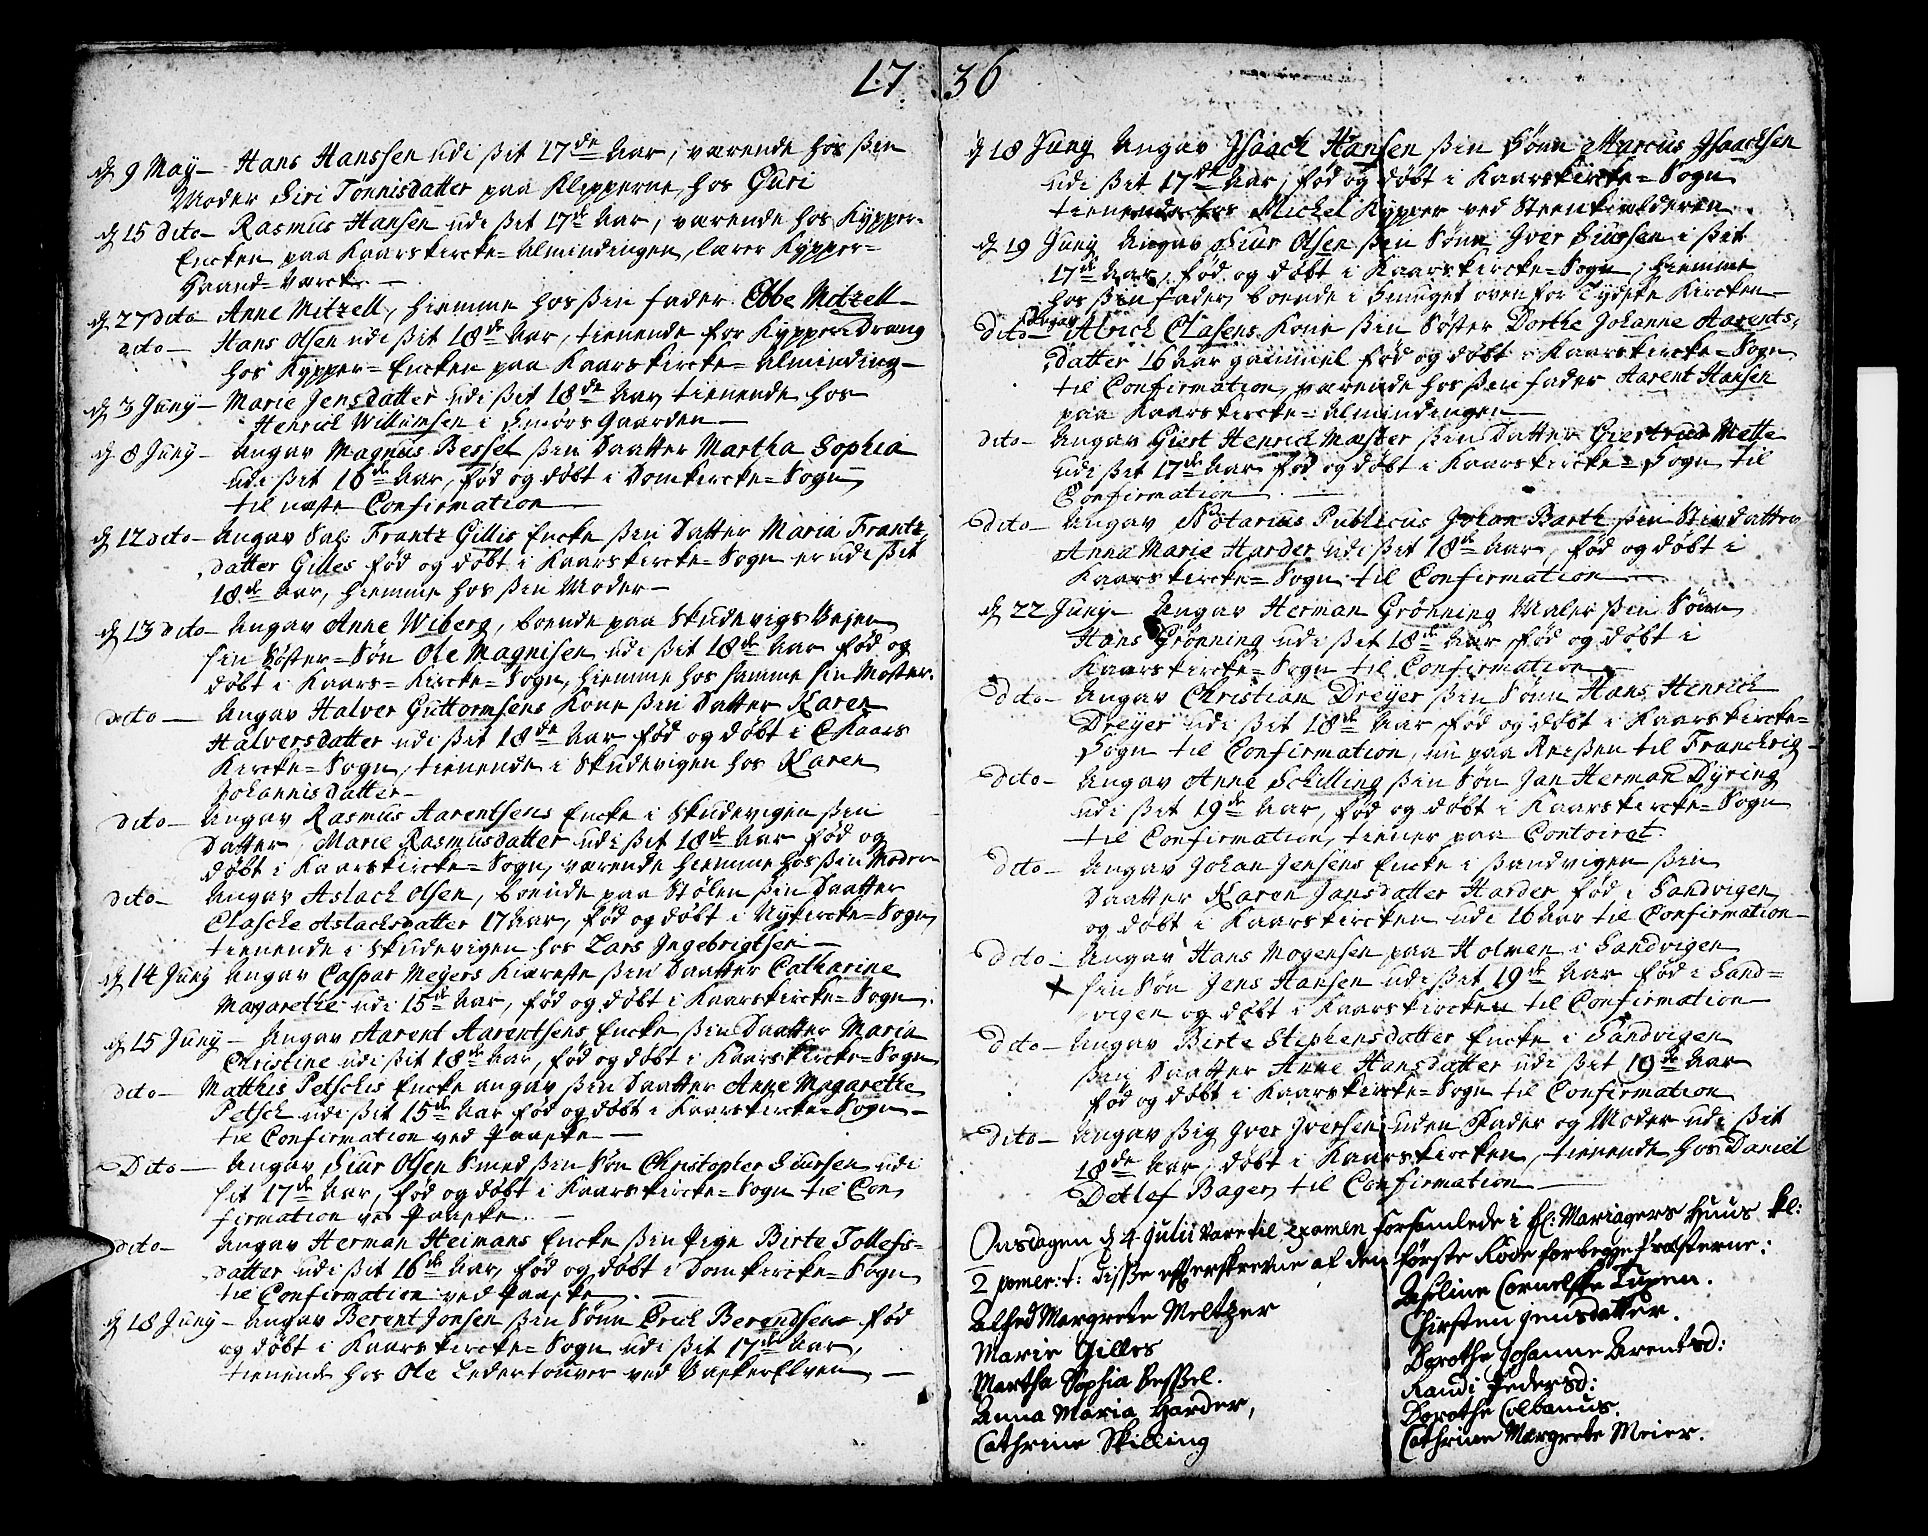 1736
d 9 May – Hans Hanssen udi ßit 17de Aar, værende hos ßin
Moder Siri Tonnisdatter paa Klipperne, hos Guri
d 15 dito – Rasmus Hansen udi ßit 17de Aar, værende hos Kypper-
Encken paa Kaarskircke-Almindingen, lærer Kypper-
Haand-Værck. –
d 27 dito – Anne Mitzell, hiemme hos ßin fader Ebbe Mitzell –
dito – Hans Olsen udi ßit 18de Aar, tienende for Kypper-Dræng
hos Kypper-Encken paa Kaarskircke-Alminding –
d 3 Juny – Marie Jensdatter udi ßit 18de Aar tienende hos
Henrich Willumsen i Smørs Gaarden –
d 8 Juny – Angav Magnus Bessel ßin Daatter Martha Sophia
udi ßit 16de Aar, fød og døbt i Domkircke-Sogn,
til næste Confirmation –
d 12 dito – Angav Sal. Frantz Gillis Encke ßin Datter Maria Frantz,
datter Gilles fød og døbt i Kaarskircke-Sogn er udi ßit
18de Aar, hiemme hos ßin Moder –
d 13 dito – Angav Anne Wiberg, boende paa Skudevigs Veyen
sin Søster-Søn Ole Magnisen udi ßit 18de Aar fød og
døbt i Kaars-Kircke-Sogn, hiemme hos samme sin Moster.
dito – Angav Halver Guttormsens Kone ßin Datter Karen
Halversdatter udi ßit 18de Aar fød og døbt i Kaars
Kircke-Sogn, tienende i Skudevigen hos Karen
Johannisdatter –
dito – Angav Rasmus Aarentsens Encke i Skudevigen ßin
Datter, Marie Rasmusdatter udi ßit 18de Aar fød og
døbt i Kaarskircke-Sogn, værende hiemme hos ßin Moder
dito – Angav Aslach Olsen, boende paa Stølen ßin Daatter
Clasche Aslachsdatter 17 Aar, fød og døbt i Nykircke-Sogn,
tienende i Skudevigen hos Lars Ingebrigtsen –
d 14 Juny Angav Caspar Meyers Kiæreste ßin Daatter Catharine
Magarethe udi 15de Aar, fød og døbt i Kaarskircke-Sogn.
d 15 Juny – Angav Aarent Aarentsens Encke ßin Daatter Maria
Christine udi ßit 18de Aar, fød og døbt i Kaarskircke-Sogn
dito – Matthis Petschis Encke angav ßin Daatter Anne Magarethe
Petsch udi ßit 15de Aar fød og døbt i Kaarskircke-Sogn –
til Confirmation ved Paaske –
Dito – Angav Siur Olsen Smed ßin Søn Christopher Siursen udi
sit 17de Aar, fød og døbt i Kaarskircke-Sogn til Con
firmation ved Paaske. –
dito – Angav Herman Heimans Encke ßin Pige Birte Tollefs-
datter udi ßit 16de Aar, fød og døbt i Domkircke-Sogn
til Confirmation ved Paaske. –
d 18 Juny – Angav Berent Jonsen ßin Sønn Erich Berendsen fød
og døbt i Kaarskircke-Sogn udi ßit 17de Aar,
tienende hos Ole Ledertouver ved Vaskerelven –
d 18 Juny Angav Isaach Hansen ßin Sønn Marcus Isaachsen
udi ßit 17de Aar, fød og døbt i Kaarskircke-Sogn
tienende hos Michel Kypper ved Steenkielderen
d 19 Juny Angav Siur Olsen ßin Sønn Iver Siursen i ßit
17de Aar, fød og døbt i Kaarskircke-Sogn, hiemme
hos ßin fader, boende i Smuget oven for Tydske Kircken –
dito – Angav Alrich Clasens Kone ßin Søster Dorthe Johanne Aarents,
datter 16 Aar gammel fød og døbt i Kaarskircke-Sogn
til Confirmation, værende hos ßin fader Aarent Hansen
paa Kaarskircke-Almindingen –
dito – Angav Giert Henrich Mæster ßin Datter Giertrud Mette
udi ßit 17de Aar fød og døbt i Kaarskircke-Sogn til
Confirmation –
dito – Angav Notarius Publicus Johan Barth ßin Stivdatter
Anna Marie Harder udi ßit 18de Aar, fød og døbt i
Kaarskircke-Sogn til Confirmation –
d 22 Juny – Angav Herman Grønning Maler ßin Sønn
Hans Grønning udi ßit 18de Aar fød og døbt i
Kaarskircke-Sogn til Confirmation –
dito – Angav Christian Dreyer ßin Sønn Hans Henrich
Dreyer udi ßit 18de Aar fød og døbt i Kaarskircke-
Sogn til Confirmation, nu paa Reißen til Franchrig –
Dito – Angav Anne Schilling ßin Søn Jan Herman Dyring
udi ßit 19de Aar, fød og døbt i Kaarskircke-Sogn
til Confirmation, tiener paa Contoiret
dito – Angav Johan Jensens Encke i Sandvigen ßin
Daatter Karen Jansdatter Harder fød i Sandvigen,
og døbt i Kaarskircken udi 16 Aar til Confirmation –
dito – Angav Hans Mogensen paa Holmen i Sandvigen
x sin Søn Jens Hansen udi ßit 19de Aar fød i Sand-
vigen og døbt i Kaarskircken til Confirmation –
dito – Angav Birte Stephensdatter Encke i Sandvigen
ßin Daatter Anne Hansdatter udi ßit 19de Aar
fød og døbt i Kaarskircke-Sogn til Confirmation
dito – Angav ßig Iver Iversen uden Fader og Moder udi ßit
18de Aar, døbt i Kaarskircken, tienende hos Daniel
Detlef Bager, til Confirmation –
Onsdagen d 4 Julii vare til Examen forsamlede i hl: Mariagers Huus kl:
2 pomer:t: disse efterskrevne af den første Rode for begge Præsterne:
Alhed Margrete Meltzer
Marie Gilles
Martha Sophia Bessel.
Anna Maria Harder,
Cathrine Skilling
Axeline Cornelske Tuxen.
Chirsten Jensdatter.
Dorothe Johanne Arentsd:
Randi Pedersd:
Dorothe Colbanus.
Cathrine Margrete Meier.